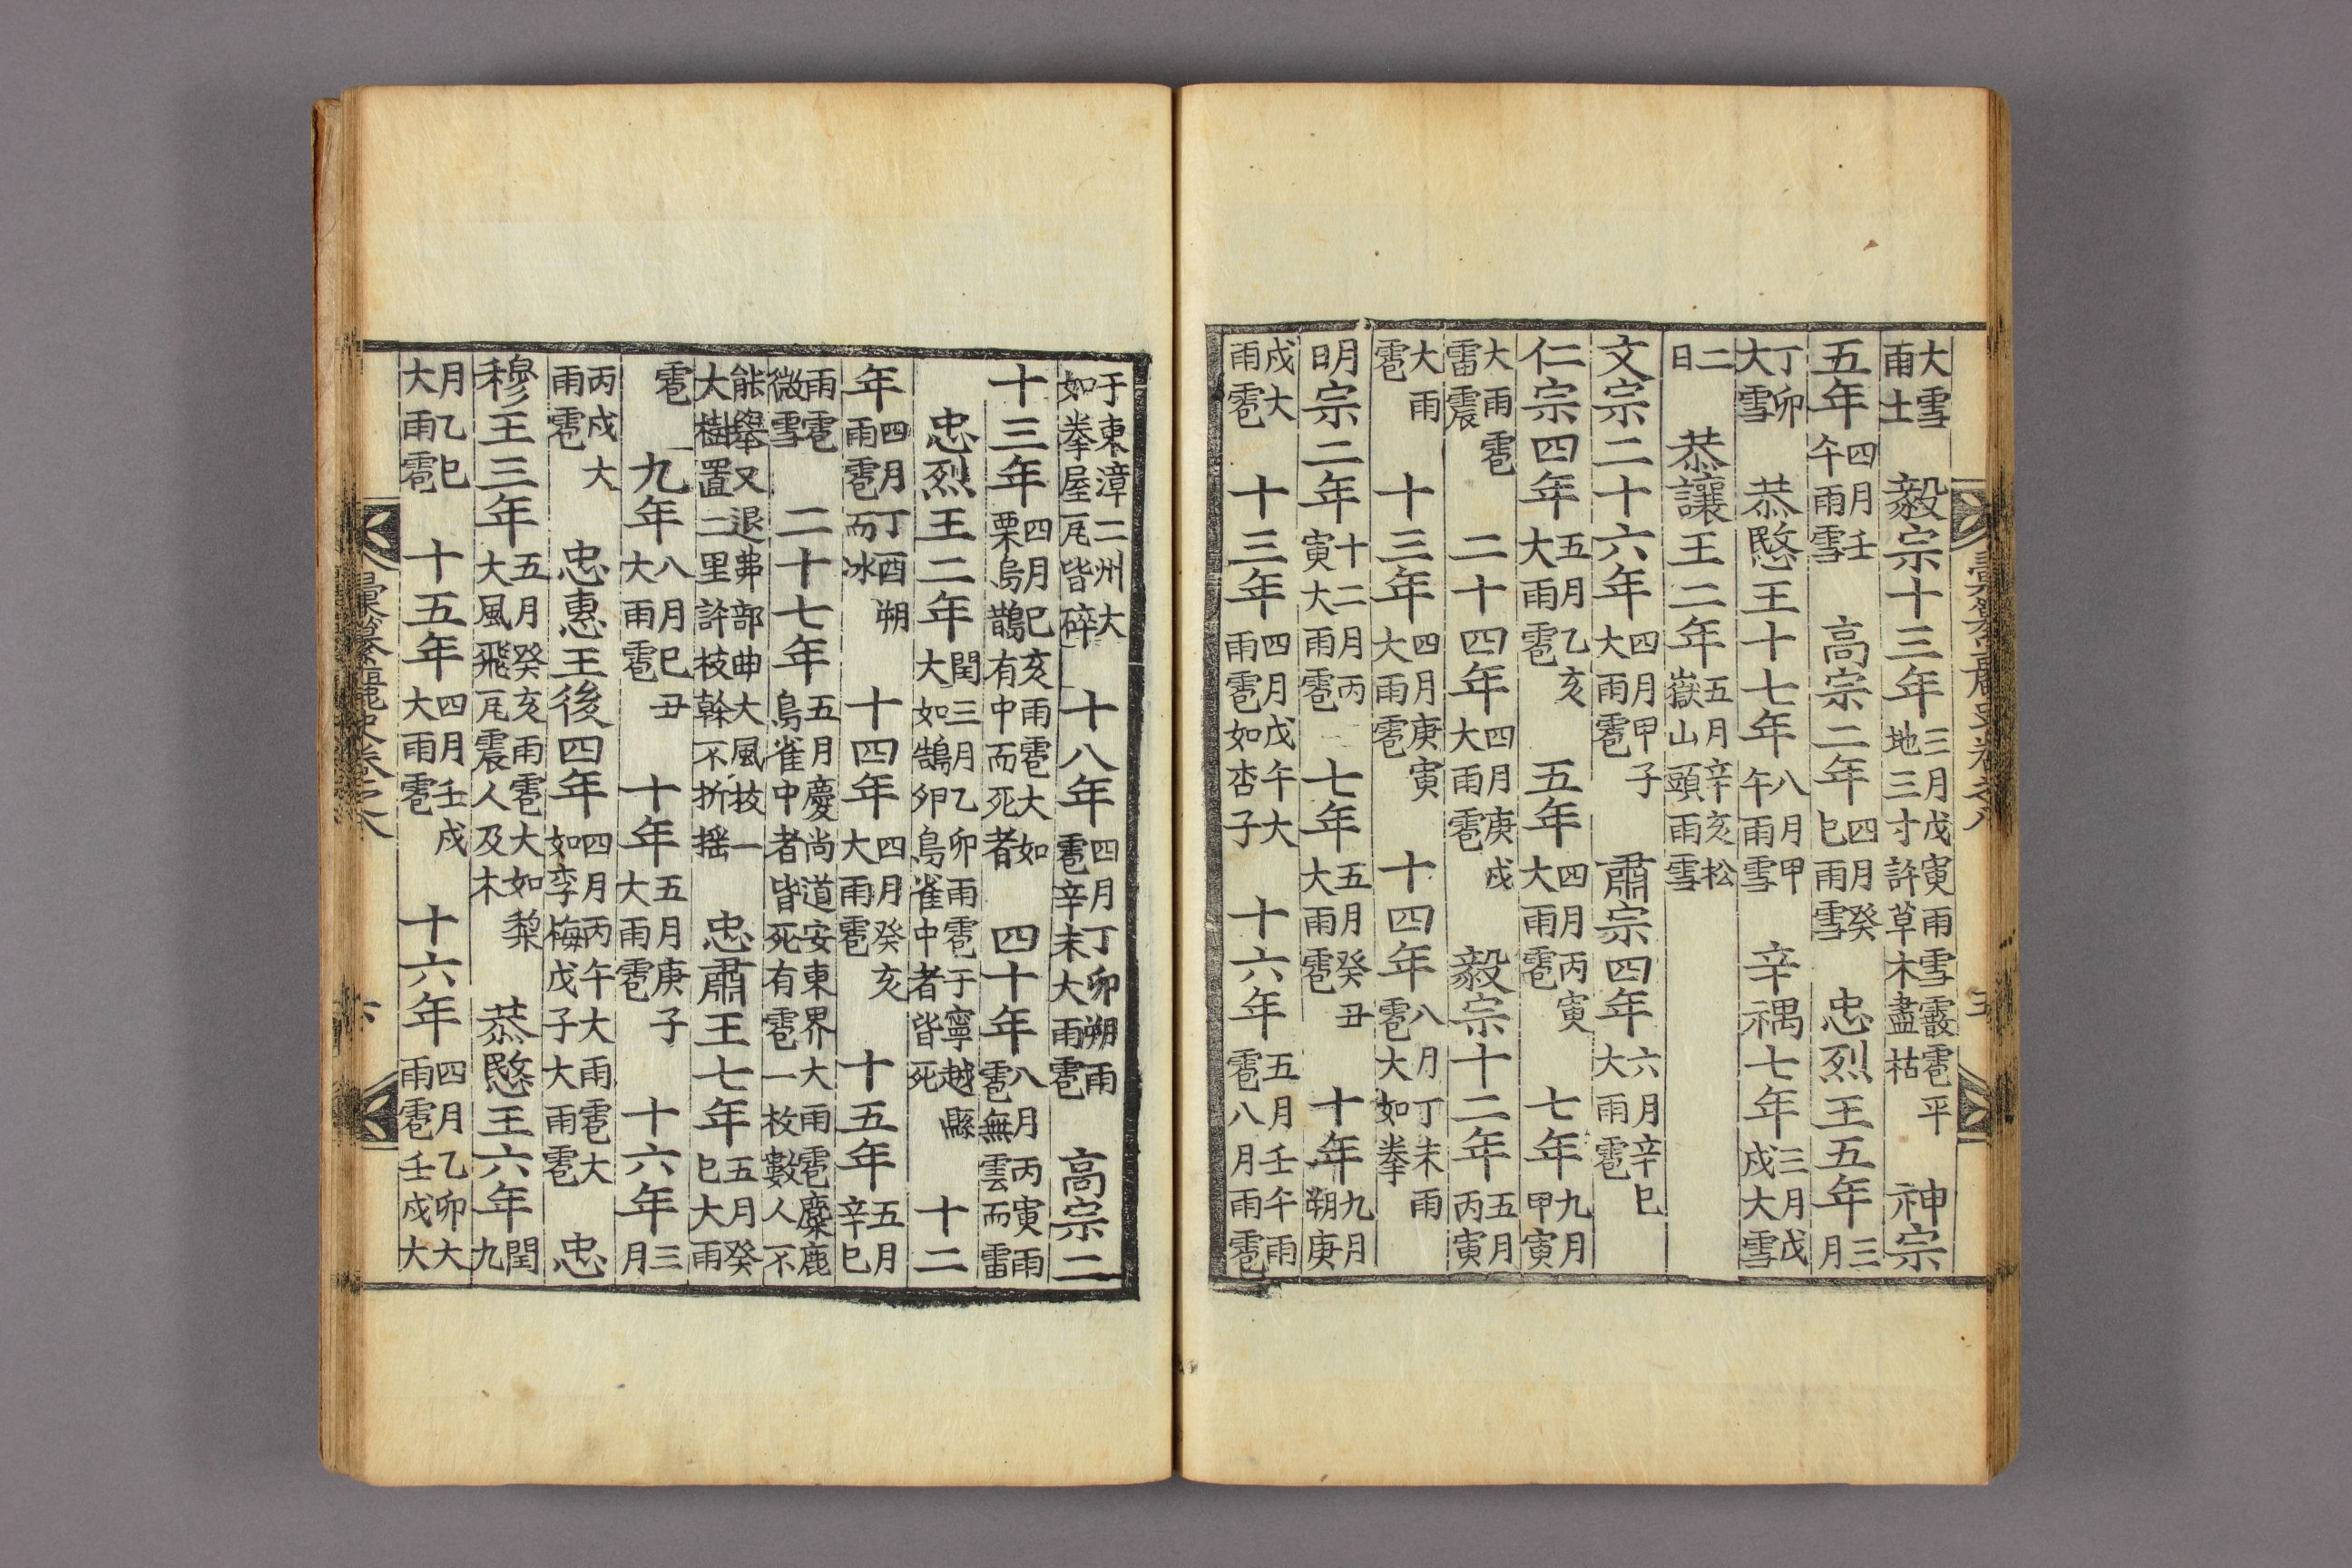 彙纂麗史卷之八 五
大雪雨土 毅宗十三年三月戊寅雨雪霰雹平地三寸許草木盡枯 神宗
五年四月壬午雨雪 高宗二年四月癸巳雨雪 忠烈王五年三月
丁卯大雪 恭愍王十七年八月甲午雨雪 辛禑七年三月戊戌大雪
二日 恭讓王二年五月辛亥松嶽山頭雨雪
文宗二十六年四月甲子大雨雹 肅宗四年六月辛巳大雨雹
仁宗四年五月乙亥大雨雹 五年四月丙寅大雨雹 七年九月甲寅
大雨雹雷震 二十四年四月庚戌大雨雹 毅宗十二年五月丙寅
大雨雹 十三年四月庚寅大雨雹 十四年八月丁未雨雹大如拳
明宗二年十二月丙寅大雨雹 七年五月癸丑大雨雹 十年九月朔庚
戌大雨雹 十三年四月戊午大雨雹如杏子 十六年五月壬午雨雹八月雨雹
于東漳二州大如拳屋瓦皆碎 十八年四月丁卯朔雨雹辛未大雨雹 高宗二
十三年四月己亥雨雹大如栗烏鵲有中而死者 四十年八月丙寅雨雹無雲而雷
忠烈王二年閏三月乙卯雨雹于寧越縣大如鵠卵鳥雀中者皆死 十二
年四月丁酉朔雨雹而冰 十四年四月癸亥大雨雹 十五年五月辛巳
雨雹微雪 二十七年五月慶尚道安東界大雨雹麋鹿鳥雀中者皆死有雹一枚數人不
能舉又退弗部曲大風拔一大樹置二里許枝幹不折搖 忠肅王七年五月癸巳大雨
雹 九年八月己丑大雨雹 十年五月庚子大雨雹 十六年三月
丙戌大雨雹 忠惠王後四年四月丙午大雨雹大如李梅戊子大雨雹 忠
穆王三年五月癸亥雨雹大如梨大風飛瓦震人及木 恭愍王六年閏九
月乙巳大雨雹 十五年四月壬戌大雨雹 十六年四月乙卯大雨雹壬戌大
彙纂麗史卷之八 六